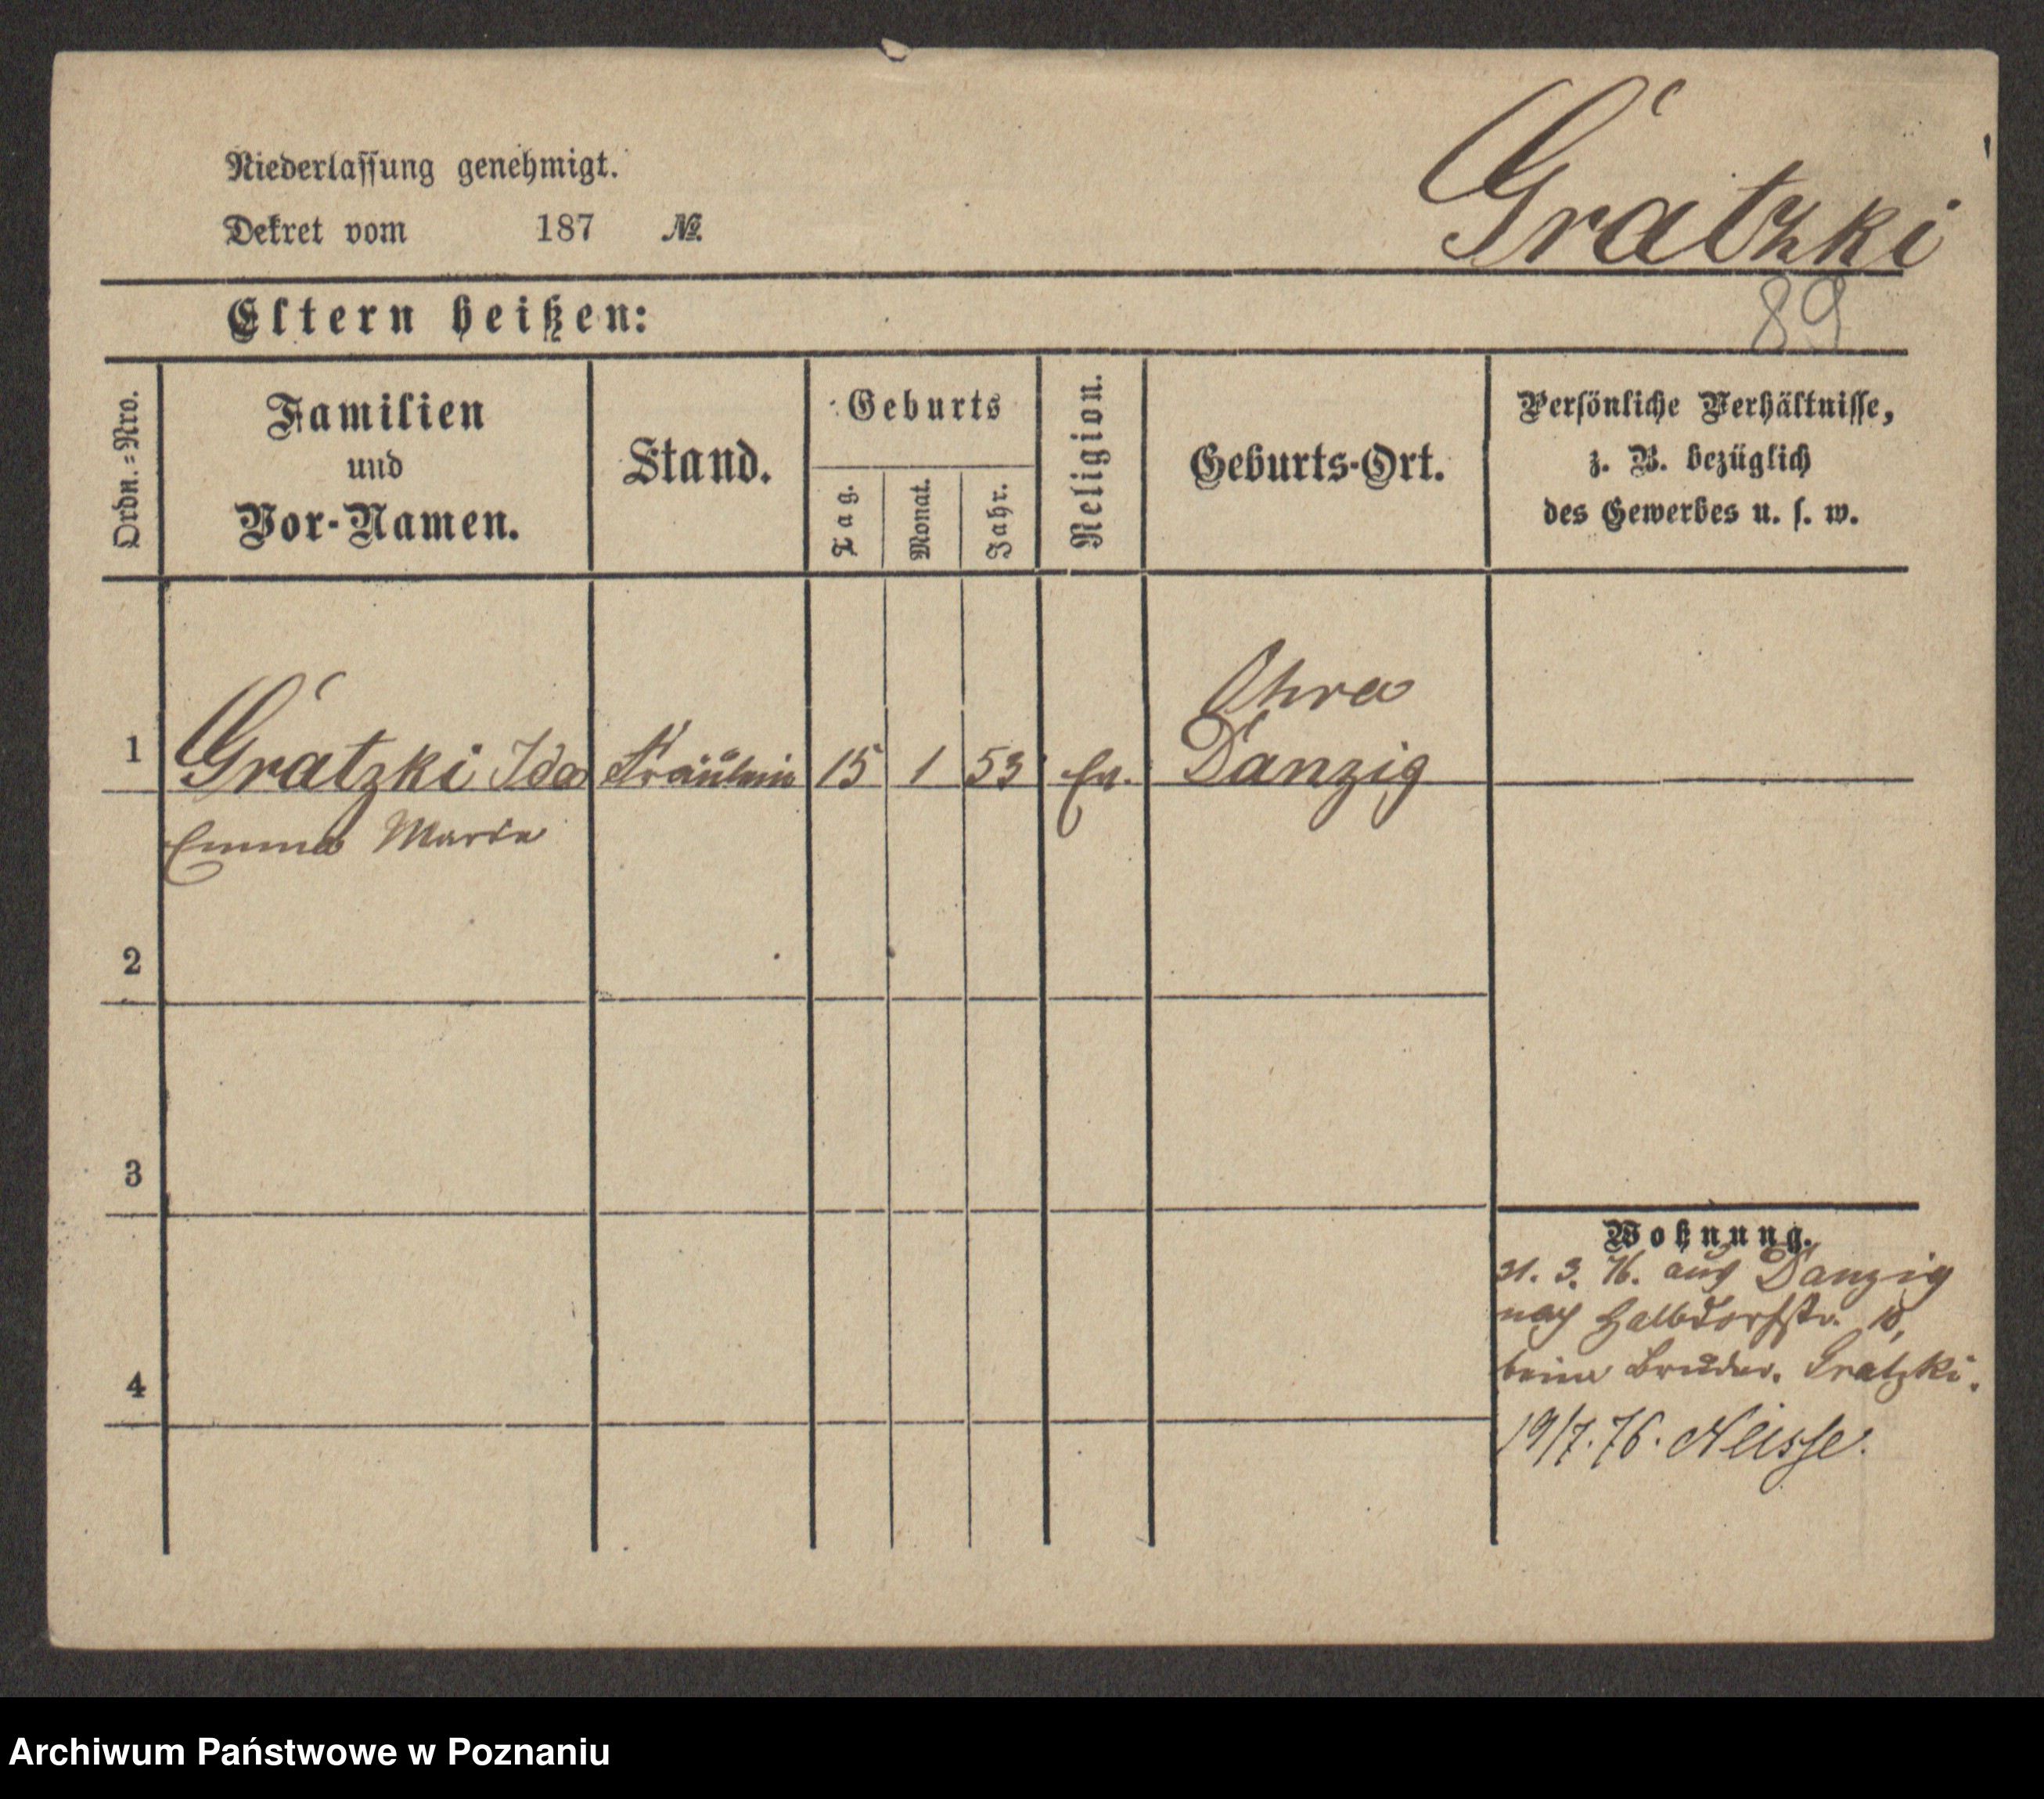 Niederlassung genehmigt.
Dekret vom 187 №
Gratzki
89
Eltern heißen:
Ordn.=Nro.
Familien
und
Vor-Namen.
Stand.
Geburts
Tag.
Monat.
Jahr.
Religion.
Geburts-Ort.
Persönliche Verhältnisse,
z. B. bezüglich
des Gewerbes u. s. w.
Ohra
1 Gratzki Ida Fräulein 15 1 53 Ev. Danzig
Emma Marie
2
3
4
Wohnung.
31. 3. 76. aus Danzig
nach Halbdorfstr. 10,
beim Bruder. Gratzki.
19/7. 76. Neisse.
Archiwum Państwowe w Poznaniu